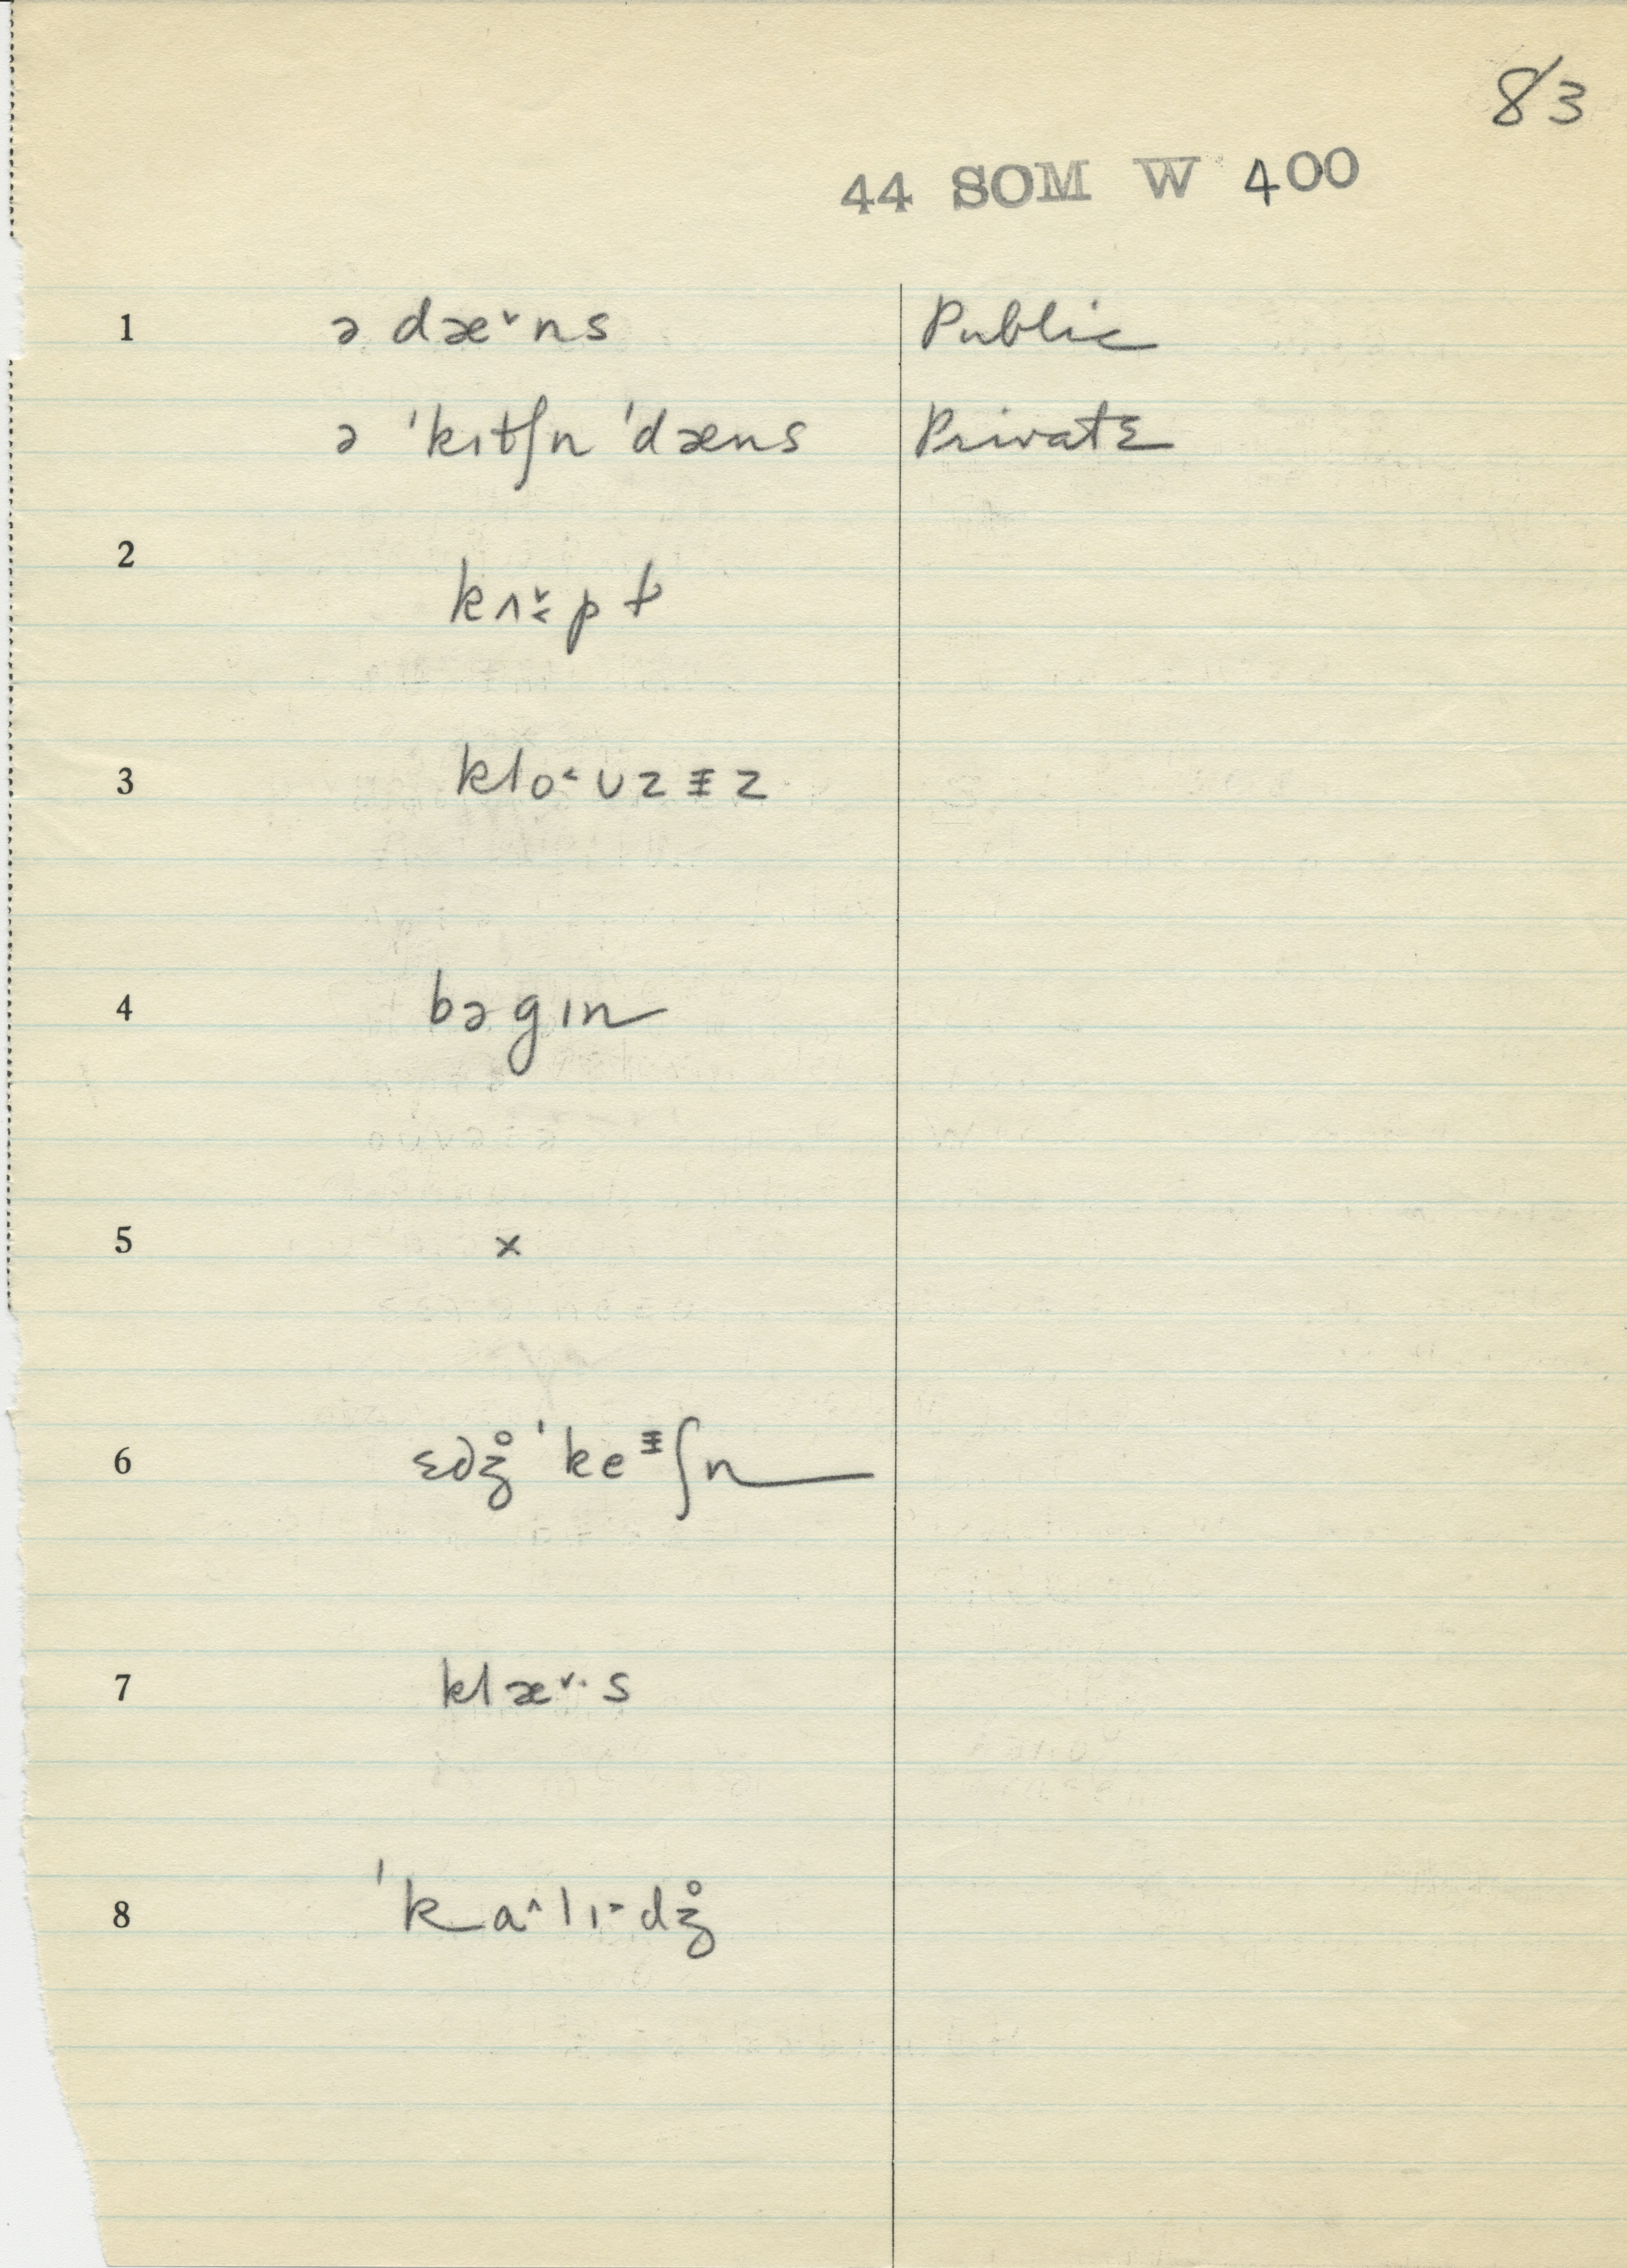 83
44 SOM W 400
1 ə dæ˅ns Public
ə ˈkɪtʃn ˈdæns Private
2 kʌ˅˂pt
3 klo˂ʊzɨz
4 bəgɪn
5 x
6 ɛdʒ̊ ˈkeᵻʃn
7 klæ˅·s
8 ˈka^lɪ-dʒ̊